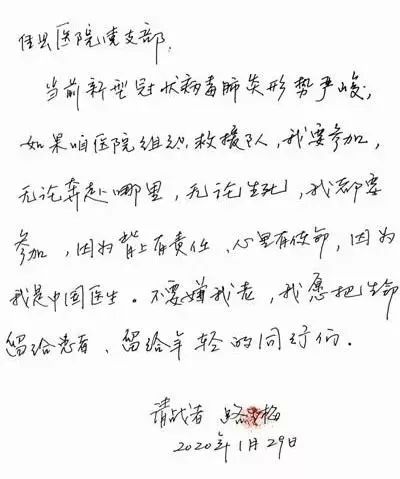 佳县医院党支部,
当前新型冠状病毒肺炎形势严峻,
如果咱医院组织救援队,我要参加,
无论奔赴哪里,无论生死,我都要
参加,因为肩上有责任、心里有使命,因为
我是中国医生。不要嫌我老,我愿把生命
留给患者、留给年轻的同行们。
请战者 路梅
2020年1月29日